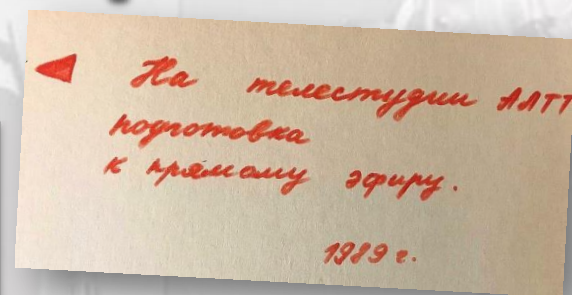 На телестудии АЛТТ
подготовка
к прямому эфиру.
1989 г.